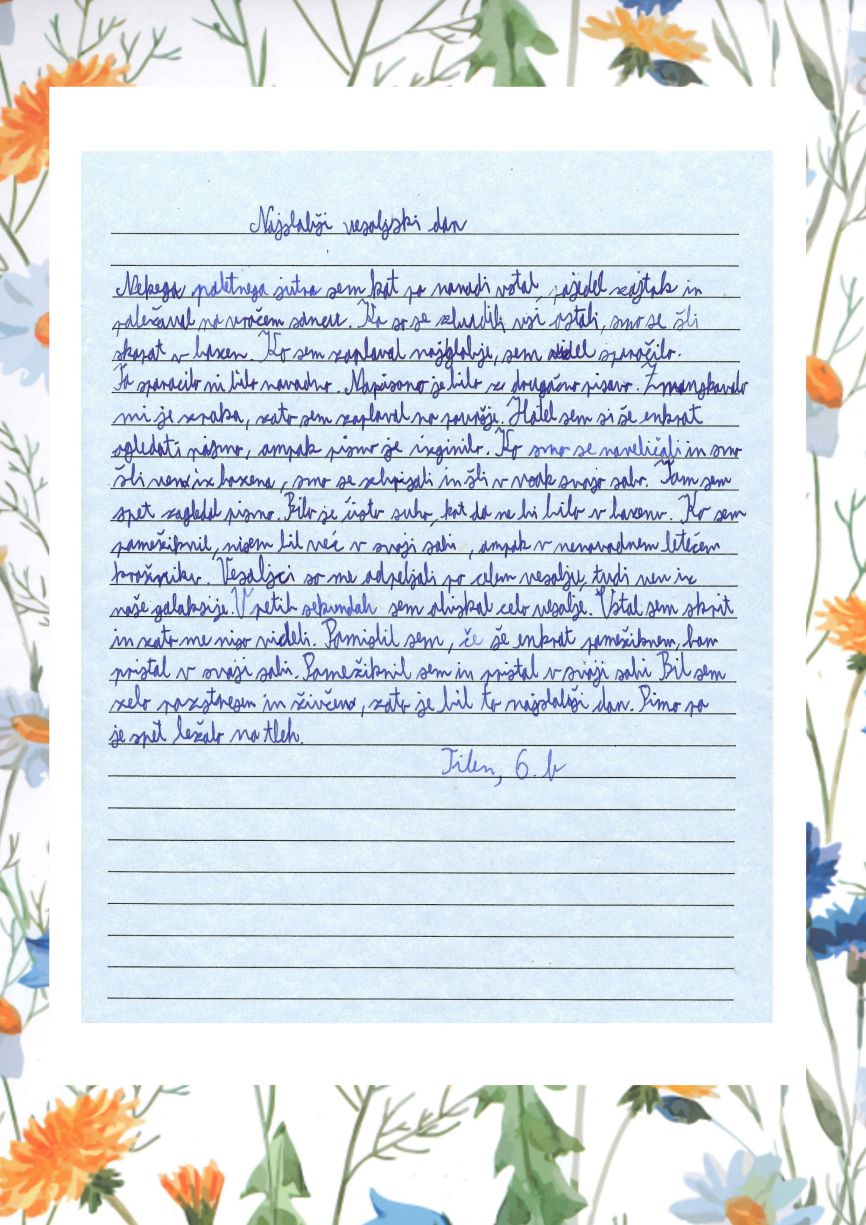 Najslabši vesoljski dan
Nekega poletnega jutra sem kot po navadi vstal, pojedel zajtrk in
poležaval na vročem soncu. Ko so se zbudili vsi ostali, smo se šli
skopat v bazen. Ko sem zaplaval najgloblje, sem videl sporočilo.
To sporočilo ni bilo navadno. Napisano je bilo z drugačno pisavo. Zmanjkovalo
mi je zraka, zato sem zaplaval na površje. Hotel sem si še enkrat
ogledati pismo, ampak pismo je izginilo. Ko smo se naveličali in smo
šli ven iz bazena, smo se zbrisali in šli v vsak svojo sobo. Tam sem
spet zagledal pismo. Bilo je čisto suho, kot da ne bi bilo v bazenu. Ko sem
pomežiknil, nisem bil več v svoji sobi, ampak v nenavadnem letečem
krožniku. Vesoljci so me odpeljali po celem vesolju, tudi ven iz
naše galaksije. V petih sekundah sem obiskal celo vesolje. Ostal sem skrit
in zato me niso videli. Pomislil sem, če še enkrat pomežiknem, bom
pristal v svoji sobi. Pomežiknil sem in pristal v svoji sobi. Bil sem
zelo raztresen in živčen, zato je bil to najslabši dan. Pismo pa
je spet ležalo na tleh.
Tilen, 6. b